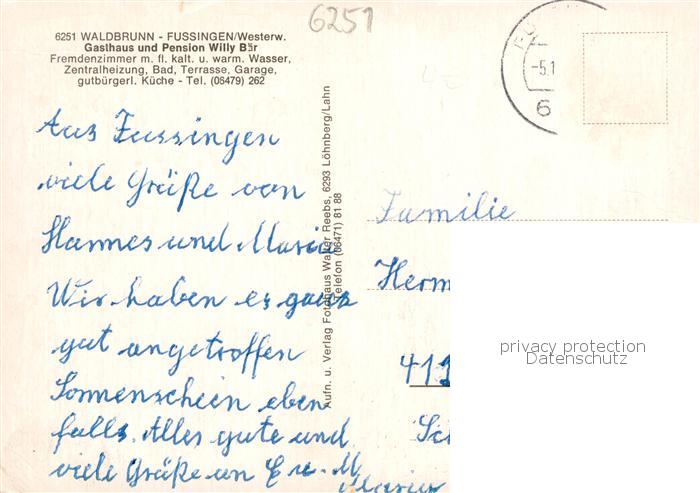 6251
6251 WALDBRUNN - FUSSINGEN/Westerw.
Gasthaus und Pension Willy Bär
Fremdenzimmer m. fl. kalt. u. warm. Wasser,
Zentralheizung, Bad, Terrasse, Garage,
gutbürgerl. Küche - Tel. (06479) 262
-5.1
6
Aus Fussingen
viele Grüße von
Hannes und Maria
Wir haben es ganz
gut angetroffen
Sonnenschein eben
falls. Alles gute und
viele Grüße an E u. M
Aufn. u. Verlag Fotohaus Walter Reebs, 6293 Löhnberg/Lahn
Telefon (06471) 81 88
Familie
Herm
411
Sc
privacy protection
Datenschutz